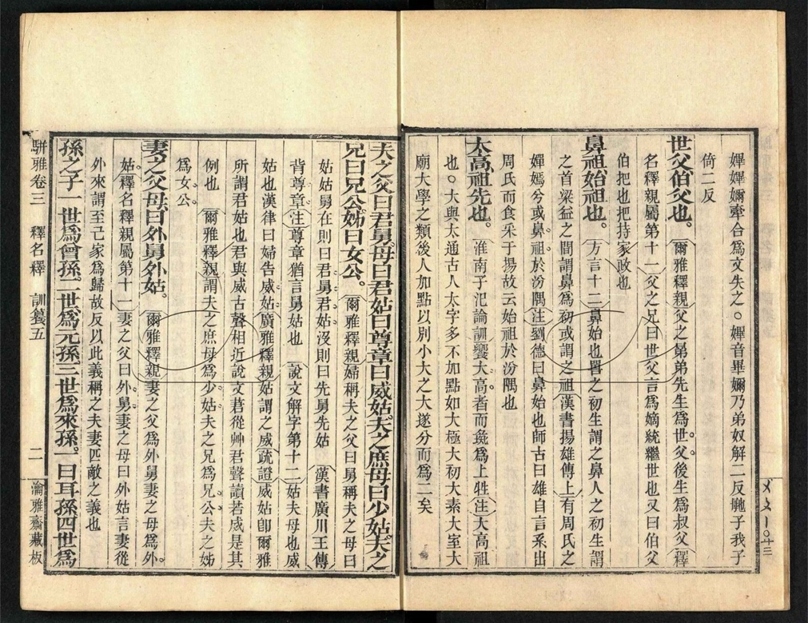 嬋嬋嬭牽合為文失之○嬋音畢嬭乃弟奴解二反毑子我子
倚二反
世父伯父也。爾雅釋親父之第弟先生為世父後生為叔父釋
名釋親屬第十一父之兄曰世父言為嫡統繼世也又曰伯父
伯把也把持家政也
鼻祖始祖也。方言十二鼻始也嘼之初生謂之鼻人之初生謂
之首梁益之間謂鼻為初或謂之祖漢書揚雄傳上有周氏之
嬋嫣兮或鼻祖於汾隅注劉德曰鼻始也師古曰雄自言系出
周氏而食采于揚故云始祖於汾隅也
太高祖先也。淮南子氾論訓饗大高者而彘為上牲注大高祖
也○大與太通古人太字多不加點如大極大初大素大室大
廟大學之類後人加點以別小大之大遂分而為二矣
夫之父曰君舅。母曰君姑曰尊章曰威姑。夫之庶母曰少姑夫之
兄曰兄公姊曰女公。爾雅釋親婦稱夫之父曰舅稱夫之母曰
姑姑舅在則曰君舅君姑沒則曰先舅先姑 漢書廣川王傳
背尊章注尊章猶言舅姑也 說文解字第十二姑夫母也威
姑也漢律曰婦告威姑廣雅釋親姑謂之威疏證威姑卽爾雅
所謂君姑也君與威古聲相近說文莙從艸君聲讀若威是其
例也 爾雅釋親謂夫之庶母為少姑夫之兄為兄公夫之姊
為女公。
妻之父母曰外舅外姑。爾雅釋親妻之父為外舅妻之母為外
姑。釋名釋親屬第十一妻之父曰外舅妻之母曰外姑言妻從
外來謂至己家為歸故反以此義稱之夫妻匹敵之義也
孫之子一世為曾孫二世為元孫三世為來孫。一曰耳孫四世為
駢雅卷三 釋名釋 訓籑五
二
瀹雅齋藏板